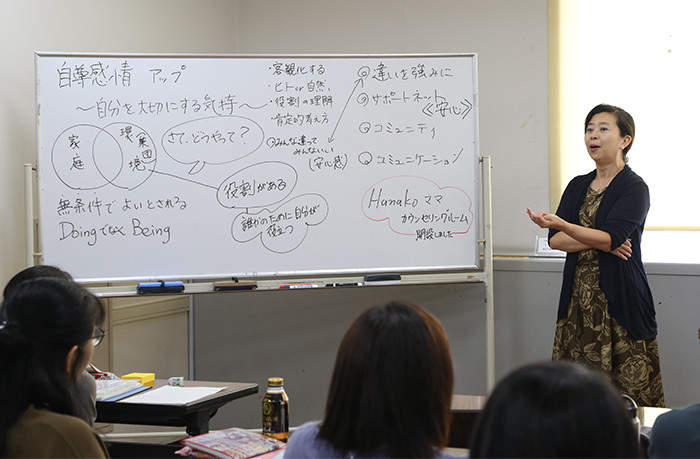 自尊感情 アップ
～自分を大切にする気持～
家庭
環境
集団
さて、どうやって?
無条件でよいとされる
Doingでなく Being
役割がある
誰かのために自分が
役立つ
・客観化する
・ヒト or 自然、
・役割の理解
・肯定的考え方
◎みんな違って
みんないい
(安心感)
◎違いを強みに
◎サポートネット
《安心》
◎コミュニティ
◎コミュニケーション
Hanako ママ
カウンセリングルーム
開設しました